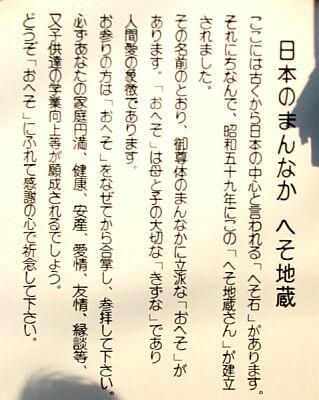 日本のまんなか へそ地蔵
ここには古くから日本の中心と言われる「へそ石」があります。
それにちなんで、昭和五十九年にこの「へそ地蔵さん」が建立
されました。
その名前のとおり、御尊体のまんなかに立派な「おへそ」が
あります。「おへそ」は母と子の大切な「きずな」であり
人間愛の象徴であります。
お参りの方は「おへそ」をなぜてから合掌し、参拝して下さい。
必ずあなたの家庭円満、健康、安産、愛情、友情、縁談等、
又子供達の学業向上等が願成されるでしょう。
どうぞ「おへそ」にふれて感謝の心で祈念して下さい。